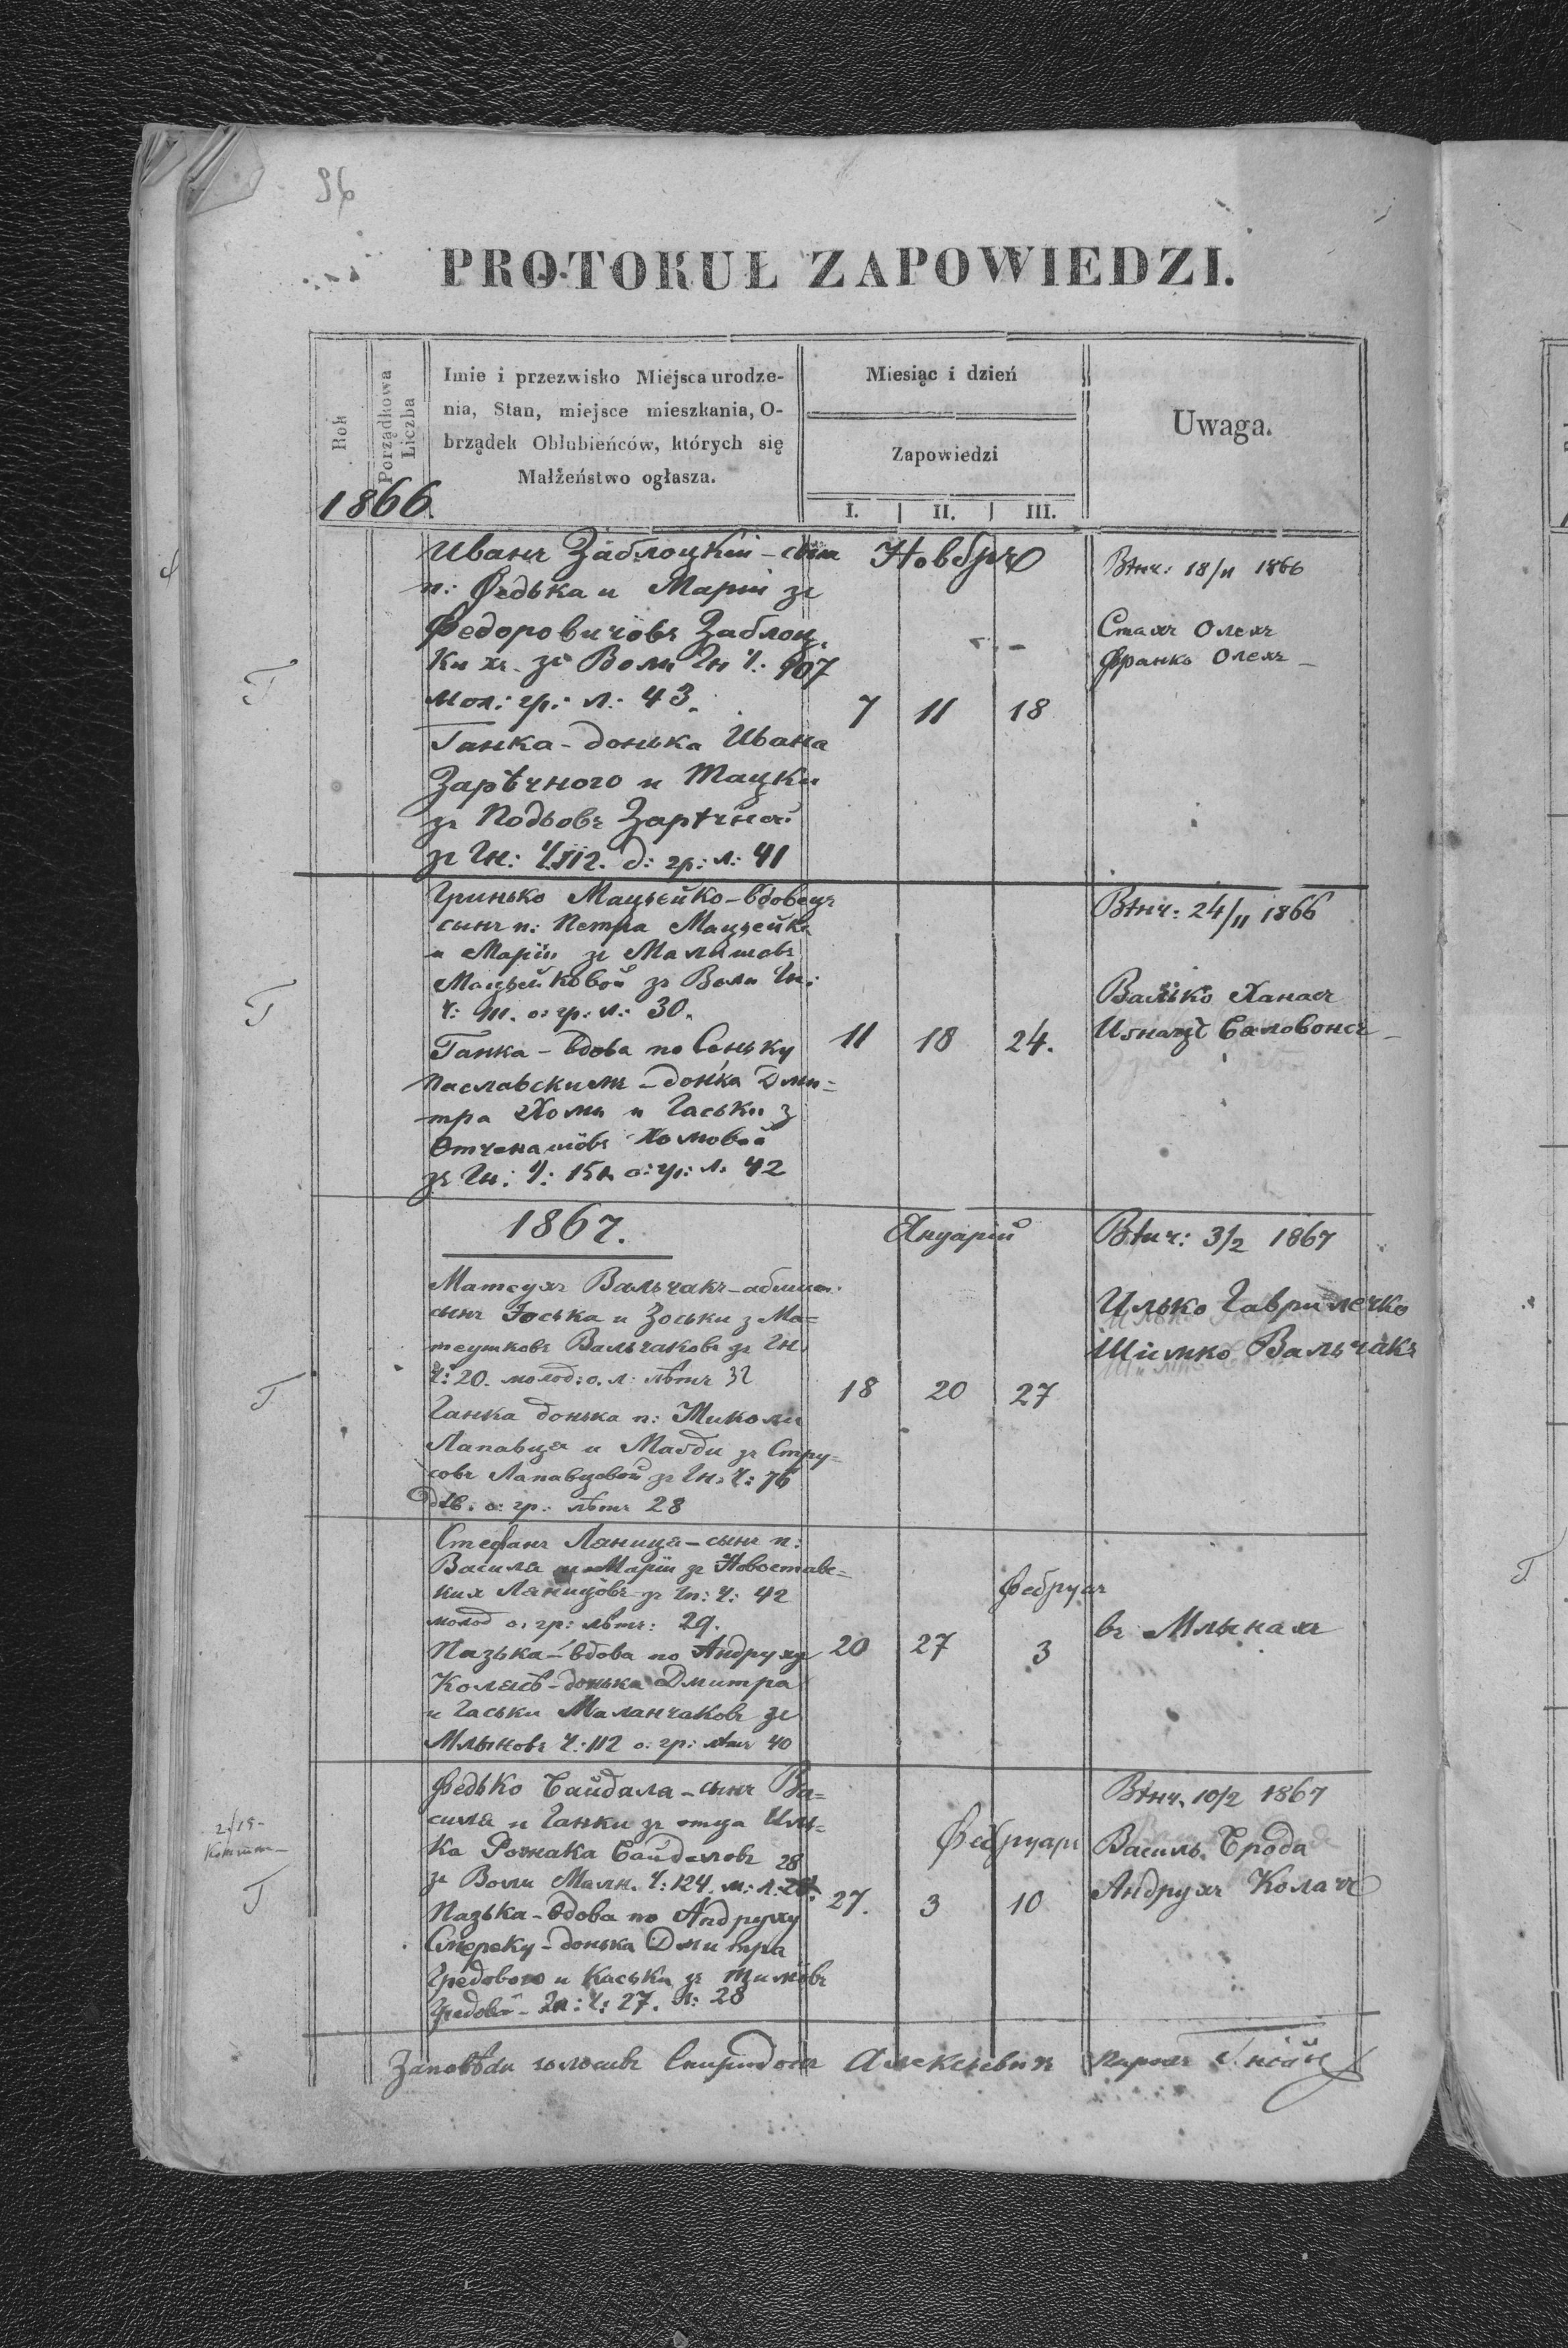 96
PROTOKUŁ ZAPOWIEDZI.
Rok
Porządkowa Liczba
Imie i przezwisko Miejsca urodze-
nia, Stan, miejsce mieszkania, O-
brządek Oblubieńców, których się
Małżeństwo ogłasza.
Miesiąc i dzień
Zapowiedzi
I. II. III.
Uwaga.
1866.
Иванъ Заблоцкій - сынъ
п: Федька и Маріи зъ
Федоровичôвъ Заблоц
кихъ зъ Воли Гн Ч: 107
мол: гр: л: 43.
Ганка - донька Ивана
Зарѣчного и Мацки
зъ Подѣовъ Зарѣчной
зъ Гн: Ч. 112. д: гр: л: 41
Новбръ
7 11 18
Вѣнч: 18/11 1866
Стахъ Олехъ
Франко Олехъ
Гринько Мацѣейко - вдовецъ
сынъ п: Петра Мацѣейка
и Маріи зъ Малишовъ
Мацѣейковой зъ Воли Гн:
Ч: 911. о: гр: л: 30.
Ганка - вдова по Сеньку
Паславскимъ - донька Дми=
тра Хомы и Гаськи з
Отченашôвъ Хомовой
зъ Гн: Ч: 151. о: гр: л. 42
11 18 24.
Вѣнч: 24/11 1866
Васько Ханасъ
1867.
Януарій
Матеухъ Вальчакъ -
сынъ Іоська и Зоськи з Ма=
теушковъ Вальчаковъ зъ Гн
Ч: 20. молод: о. л: лѣтъ 32
Ганка донька п: Миколи
Лапавця и Магди зъ Стру=
совъ Лапавцовой зъ Гн. Ч: 76
дѣв. о: гр: лѣтъ 28
18 20 27
Вѣнч: 3/2 1867
Илько Гаврилечко
Шимко Вальчакъ
Стефанъ Ляниця - сынъ п:
Василя и Маріи зъ Новоставс=
кихъ Ляницôвъ зъ Гн: Ч: 42
молод о: гр: лѣтъ: 29.
Пазька - вдова по Андруху
Коляса - донька Дмитра
и Гаськи Маланчаковъ зъ
Млыновъ Ч: 112 о: гр: лѣтъ 40
Фебруаръ
20 27 3
въ Млынахъ
Федько Байдала - сынъ Ва=
силя и Ганки зъ отца Иль=
ка Рожнака Байдаловъ 28
зъ Воли Малн. Ч: 124. м: л:
Пазька - вдова по Андруху
Смереку - донька Дмитра
Гредового и Каськи зъ Тимôвъ
Гредовой - Гн: Ч: 27. л: 28
Фебруаръ
27. 3 10
Вѣнч. 10/2 1867
Василь Брода
Андрухъ Колачъ
Заповѣди голосивъ Спиридонъ Алексѣевичъ парохъ